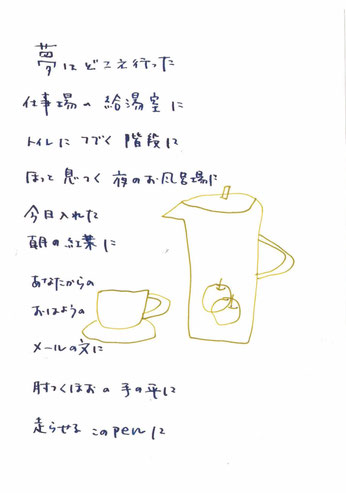 夢はどこえ行った
仕事場の給湯室に
トイレにつづく階段に
ほっと息つく夜のお風呂場に
今日入れた
朝の紅葉に
あなたからの
おはようの
メールの文に
肘つくほおの手の平に
走らせるこのpenに